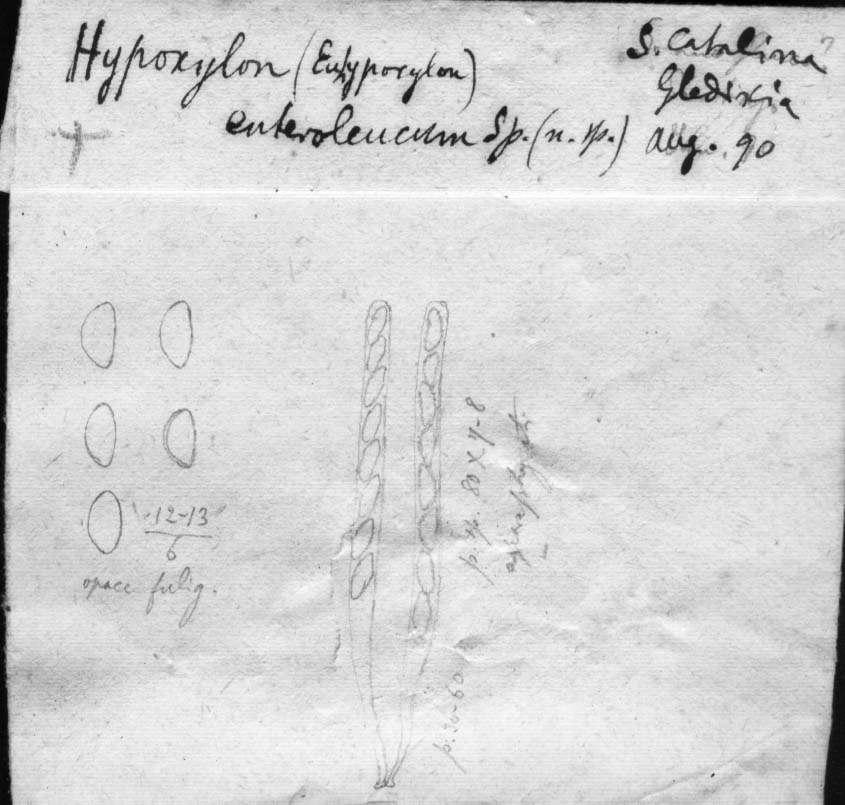 Hypoxylon (Euhypoxylon)
enteroleucum Sp. (n. sp.)
S. Catalina
Gledixia
aug. 90
12-13
6
opace fulig.
p. sp. 80 x 7-8
p. 50-60